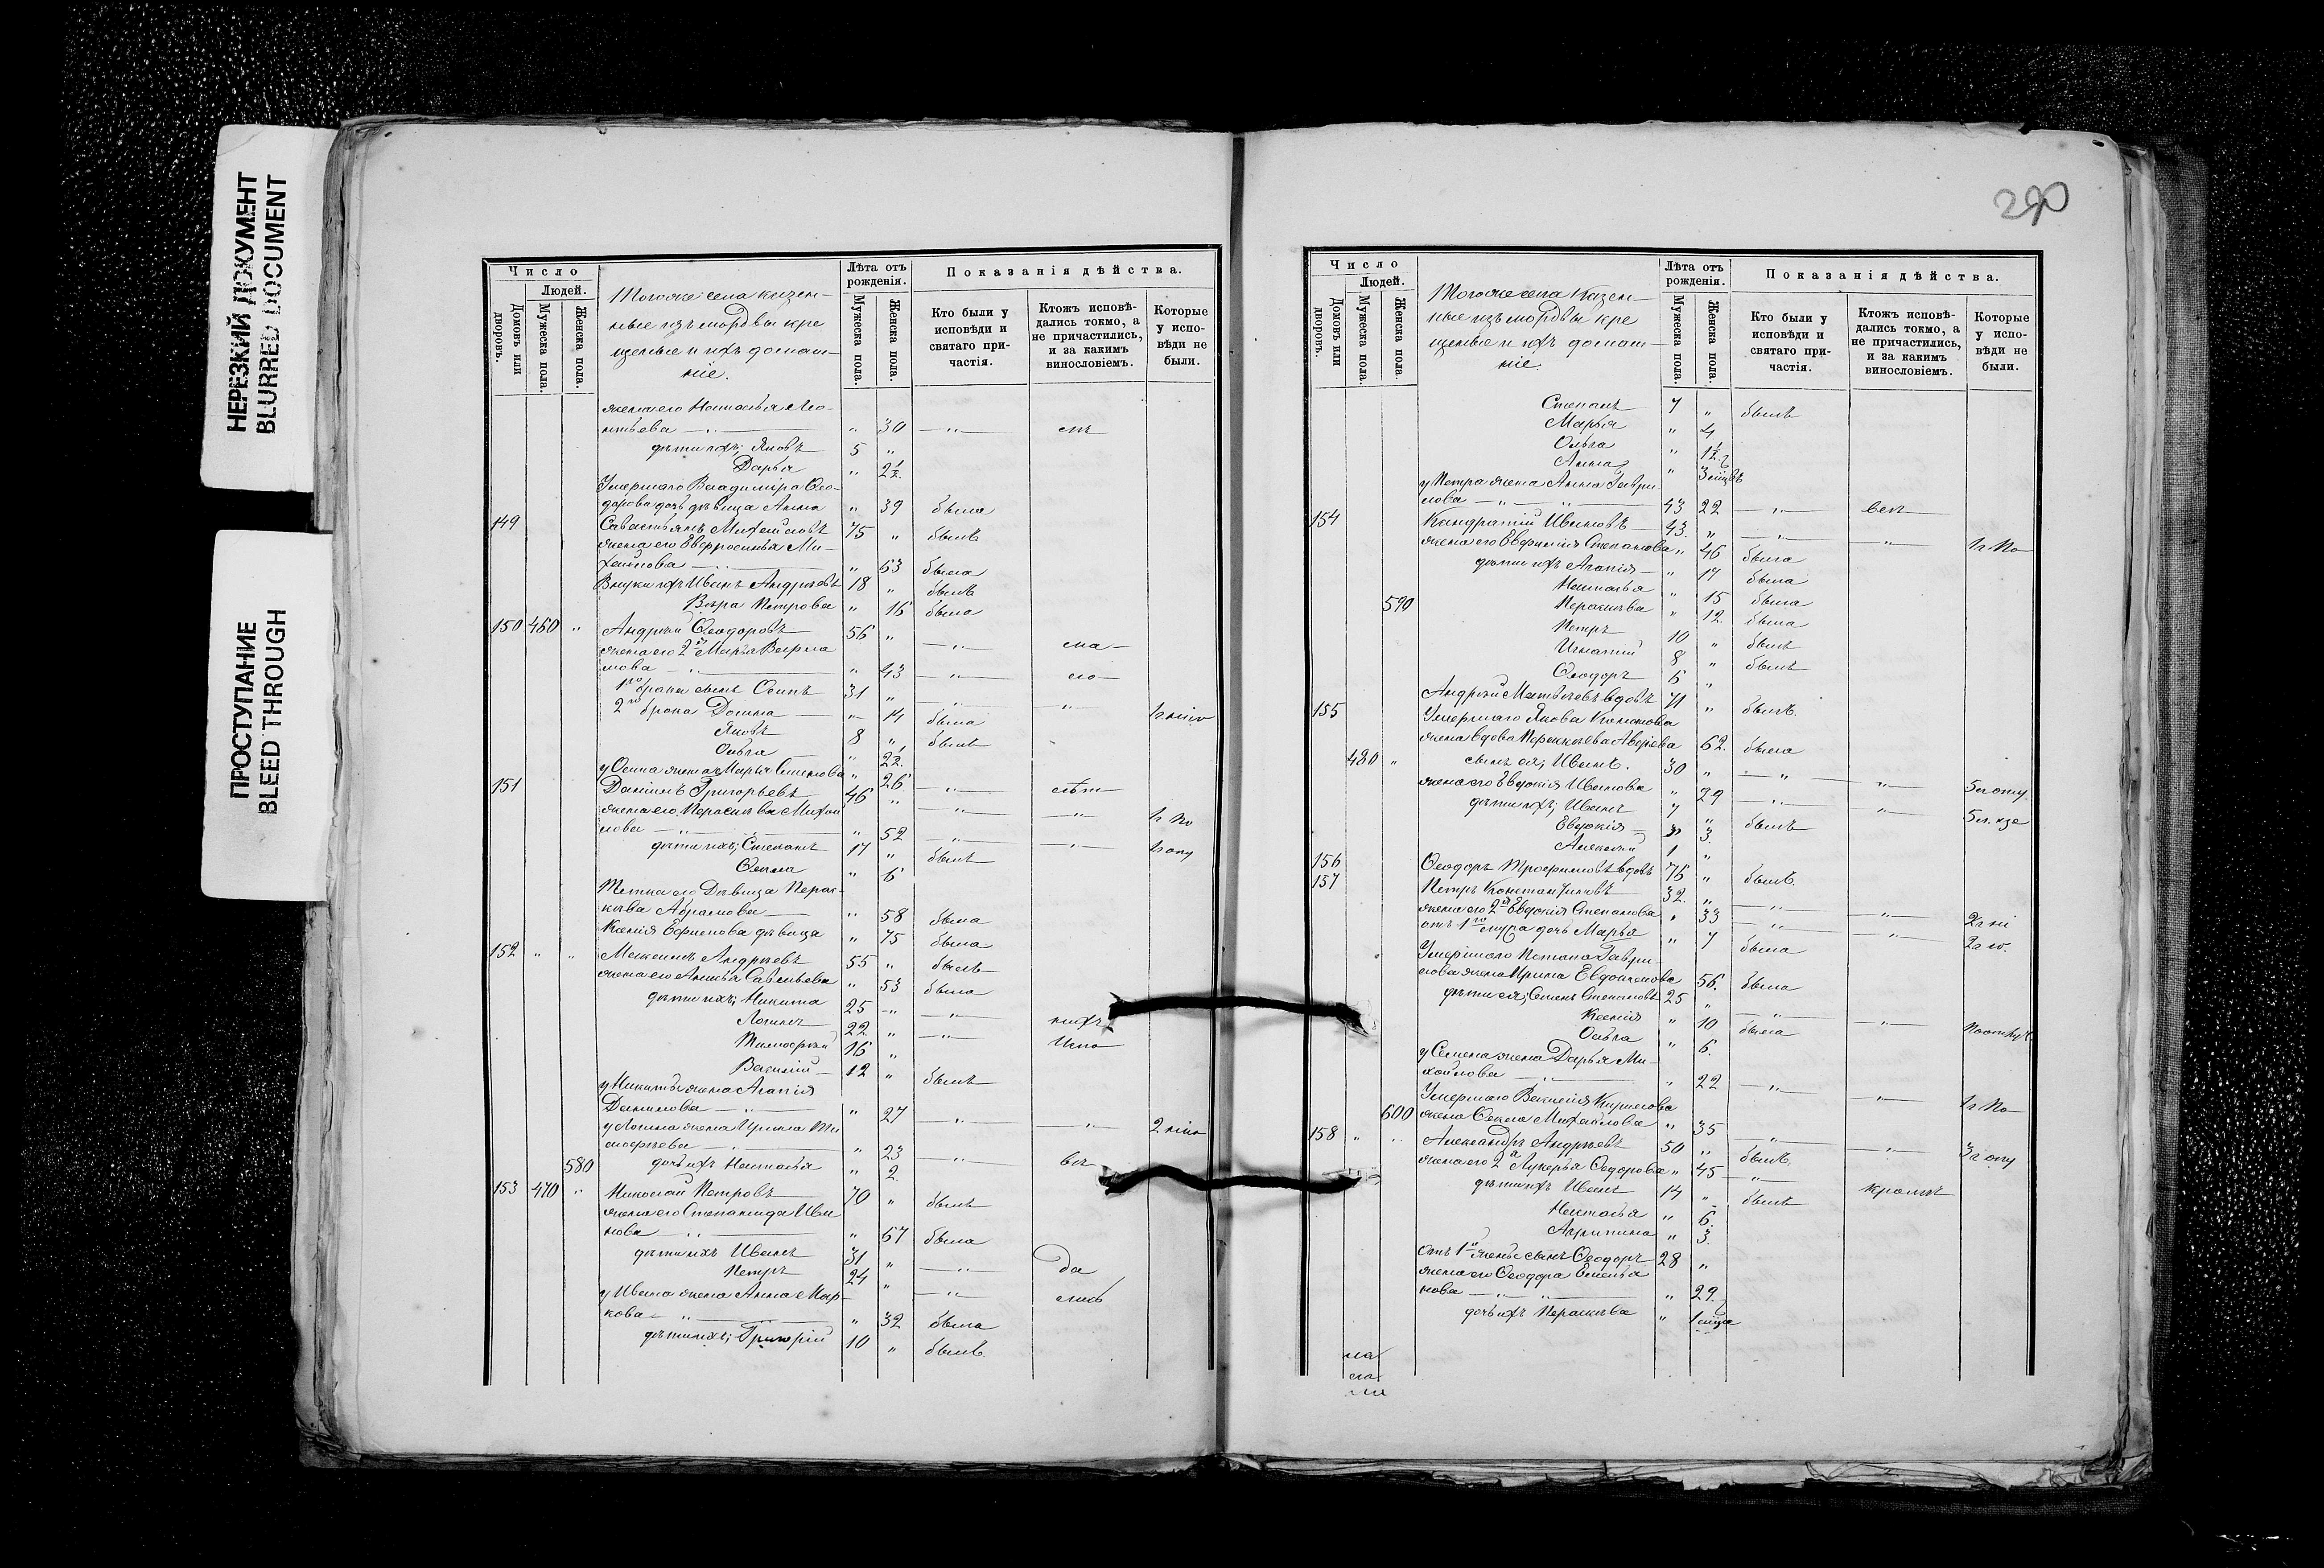 НЕРЕЗКИЙ ДОКУМЕНТ
BLURRED DOCUMENT
ПРОСТУПАНИЕ
BLEED THROUGH
290
Число
Людей.
Домовъ или дворовъ.
Мужеска пола.
Женска пола.
Тогоже села казен-
ные изъ мордвы кре
щеные и ихъ домаш-
ніе.
Лѣта отъ рожденія.
Мужеска пола.
Женска пола.
Показанія дѣйства.
Кто были у исповѣди и святаго при-частія.
Ктожъ исповѣ-дались токмо, а не причастились, и за какимъ винословіемъ.
Которые у испо-вѣди не были.
жена его Наталья Ле-
нтьева " 30 "
дѣти ихъ; Яковъ 5 "
Дарья " 2½
Умершаго Владиміра Ѳео-
дорова дочь дѣвица Анна " 39 была
149 Савастьянъ Михайловъ 75 " былъ
жена его Евфросинья Ми-
хайлова " 63 была
Внуки ихъ Иванъ Андреевъ 18 " былъ
Вѣра Петрова " 16 была
150 460 " Андрей Ѳеодоровъ 56 " "
жена его 2я Марѳа Варла
мова " 43 "
1го брака сынъ Осипъ 31 " "
2го брака Домна " 14 была
Яковъ 8 " былъ
Ольга " 2½
у Осипа жена Марья Семенова " 26 "
151 Даніилъ Григорьевъ 46 " "
жена его Парасковья Михай
лова " 52 "
дѣти ихъ; Степанъ 17 " былъ
Ѳекла " 6
Тетка его Дѣвица Парас-
кева Абрамова " 58 была
Ксенія Ефимова дѣвица " 75 была
152 " " Максимъ Андреевъ 55 " былъ
жена его Анисья Савельева " 53 была
дѣти ихъ; Никита 25 " "
Логинъ 22 " "
Тимофей 16 "
Василій 12 " былъ
у Никиты жена Агапія
Данилова " 27 "
у Логина жена Ирина Ти
мофеева " 23 "
580 дочь ихъ Наталья " 2
153 470 " Николай Петровъ 70 " былъ
жена его Степанида Ива
нова " 67 была
дѣти ихъ Иванъ 31 " "
Петръ 24 " "
у Ивана жена Анна Мар-
кова " 32 была
дѣти ихъ; Григорій 10 " былъ
Число
Людей.
Домовъ или дворовъ.
Мужеска пола.
Женска пола.
Тогоже села казен-
ные изъ мордвы кре
щеные и ихъ домаш-
ніе.
Лѣта отъ рожденія.
Мужеска пола.
Женска пола.
Показанія дѣйства.
Кто были у исповѣди и святаго при-частія.
Ктожъ исповѣ-дались токмо, а не причастились, и за какимъ винословіемъ.
Которые у испо-вѣди не были.
Степанъ 7 " былъ
Марья " 4
Ольга " 1½
Анна " 3 мцвъ
у Петра жена Анна Гаври-
лова 22 "
154 Кондратій Ивановъ 43 " "
жена его Евфимія Степанова " 46 была
дѣти ихъ Агапія " 17 была
Наталья " 15 была
590 Параскева " 12 была
Петръ 10 " былъ
Игнатій 8 " былъ
Ѳеодоръ 6 "
Андрей Матвеевъ вдовъ 71 " былъ.
155 Умершаго Якова Кононова
жена вдова Параскева Авдеева 62. была
480 " сынъ ея; Иванъ. 30 " "
жена его Евдокія Иванова " 29 "
дѣти ихъ; Иванъ 7 " былъ
Евдокія " 3.
Алексей 1 "
156 Ѳеодоръ Трофимовъ вдовъ 76 " былъ.
157 Петръ Константиновъ 32. " "
жена его 2я Евдокія Степанова " 33 "
отъ 1го мужа дочь Марья " 7 была
Умершаго Степана Гаври-
лова жена Ирина Евдокимова 56. была
дѣти ея; Семенъ Степановъ 25 " "
Ксенія " 10 была
Ольга " 6.
у Семена жена Дарья Ми-
хайлова " 22 "
Умершаго Василія Кирилова
600 жена Ѳекла Михайлова " 35 "
158 " " Александръ Андреевъ 50 " былъ
жена его 2я Лукерья Ѳеодорова " 45 "
дѣти ихъ Иванъ 14 " былъ
Наталья " 6.
Агрипина " 3
отъ 1й жены сынъ Ѳеодоръ 28 "
жена его Ѳеодора Емелья
нова " 29.
дочь ихъ Параскева " 1 мца